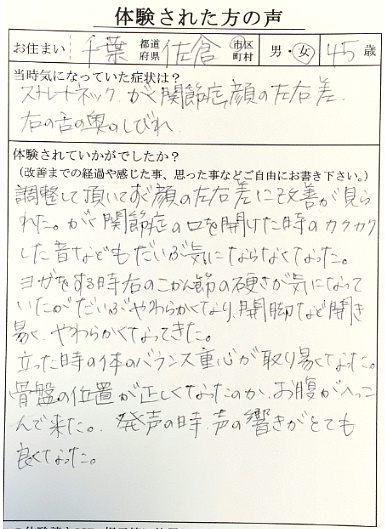 体験された方の声
お住まい 千葉 都道府県 佐倉 市区町村 男・女 45歳
当時気になっていた症状は？
ストレートネック、がく関節症、顔の左右差、
右の舌の奥のしびれ
体験されていかがでしたか？
（改善までの経過や感じた事、思った事などご自由にお書き下さい。）
調整して頂いてすぐ顔の左右差に改善が見ら
れた。がく関節症の口を開けた時のカクカク
した音などもだいぶ気にならなくなった。
ヨガをする時右のこかん節の硬さが気になって
いたがだいぶやわらかくなり、開脚など開き
易く、やわらかくなってきた。
立った時の体のバランス重心が取り易くなった。
骨盤の位置が正しくなったのか、お腹がへっこ
んで来た。発声の時、声の響きがとても
良くなった。